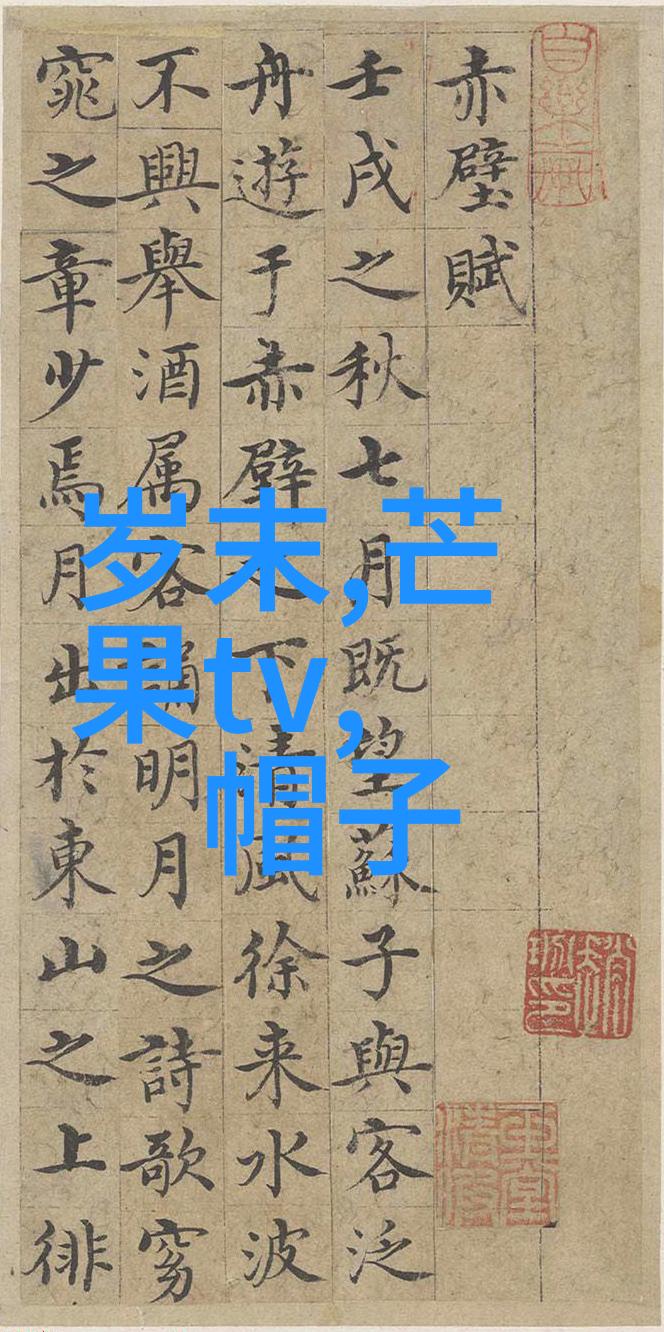 赤壁賦
壬戌之秋七月既望蘇子與客泛
舟遊于赤壁之下清風徐来水波
不興舉酒属客誦明月之詩歌窈
窕之章少焉月出於東山之上徘
岁末,芒
果tv,
帽子